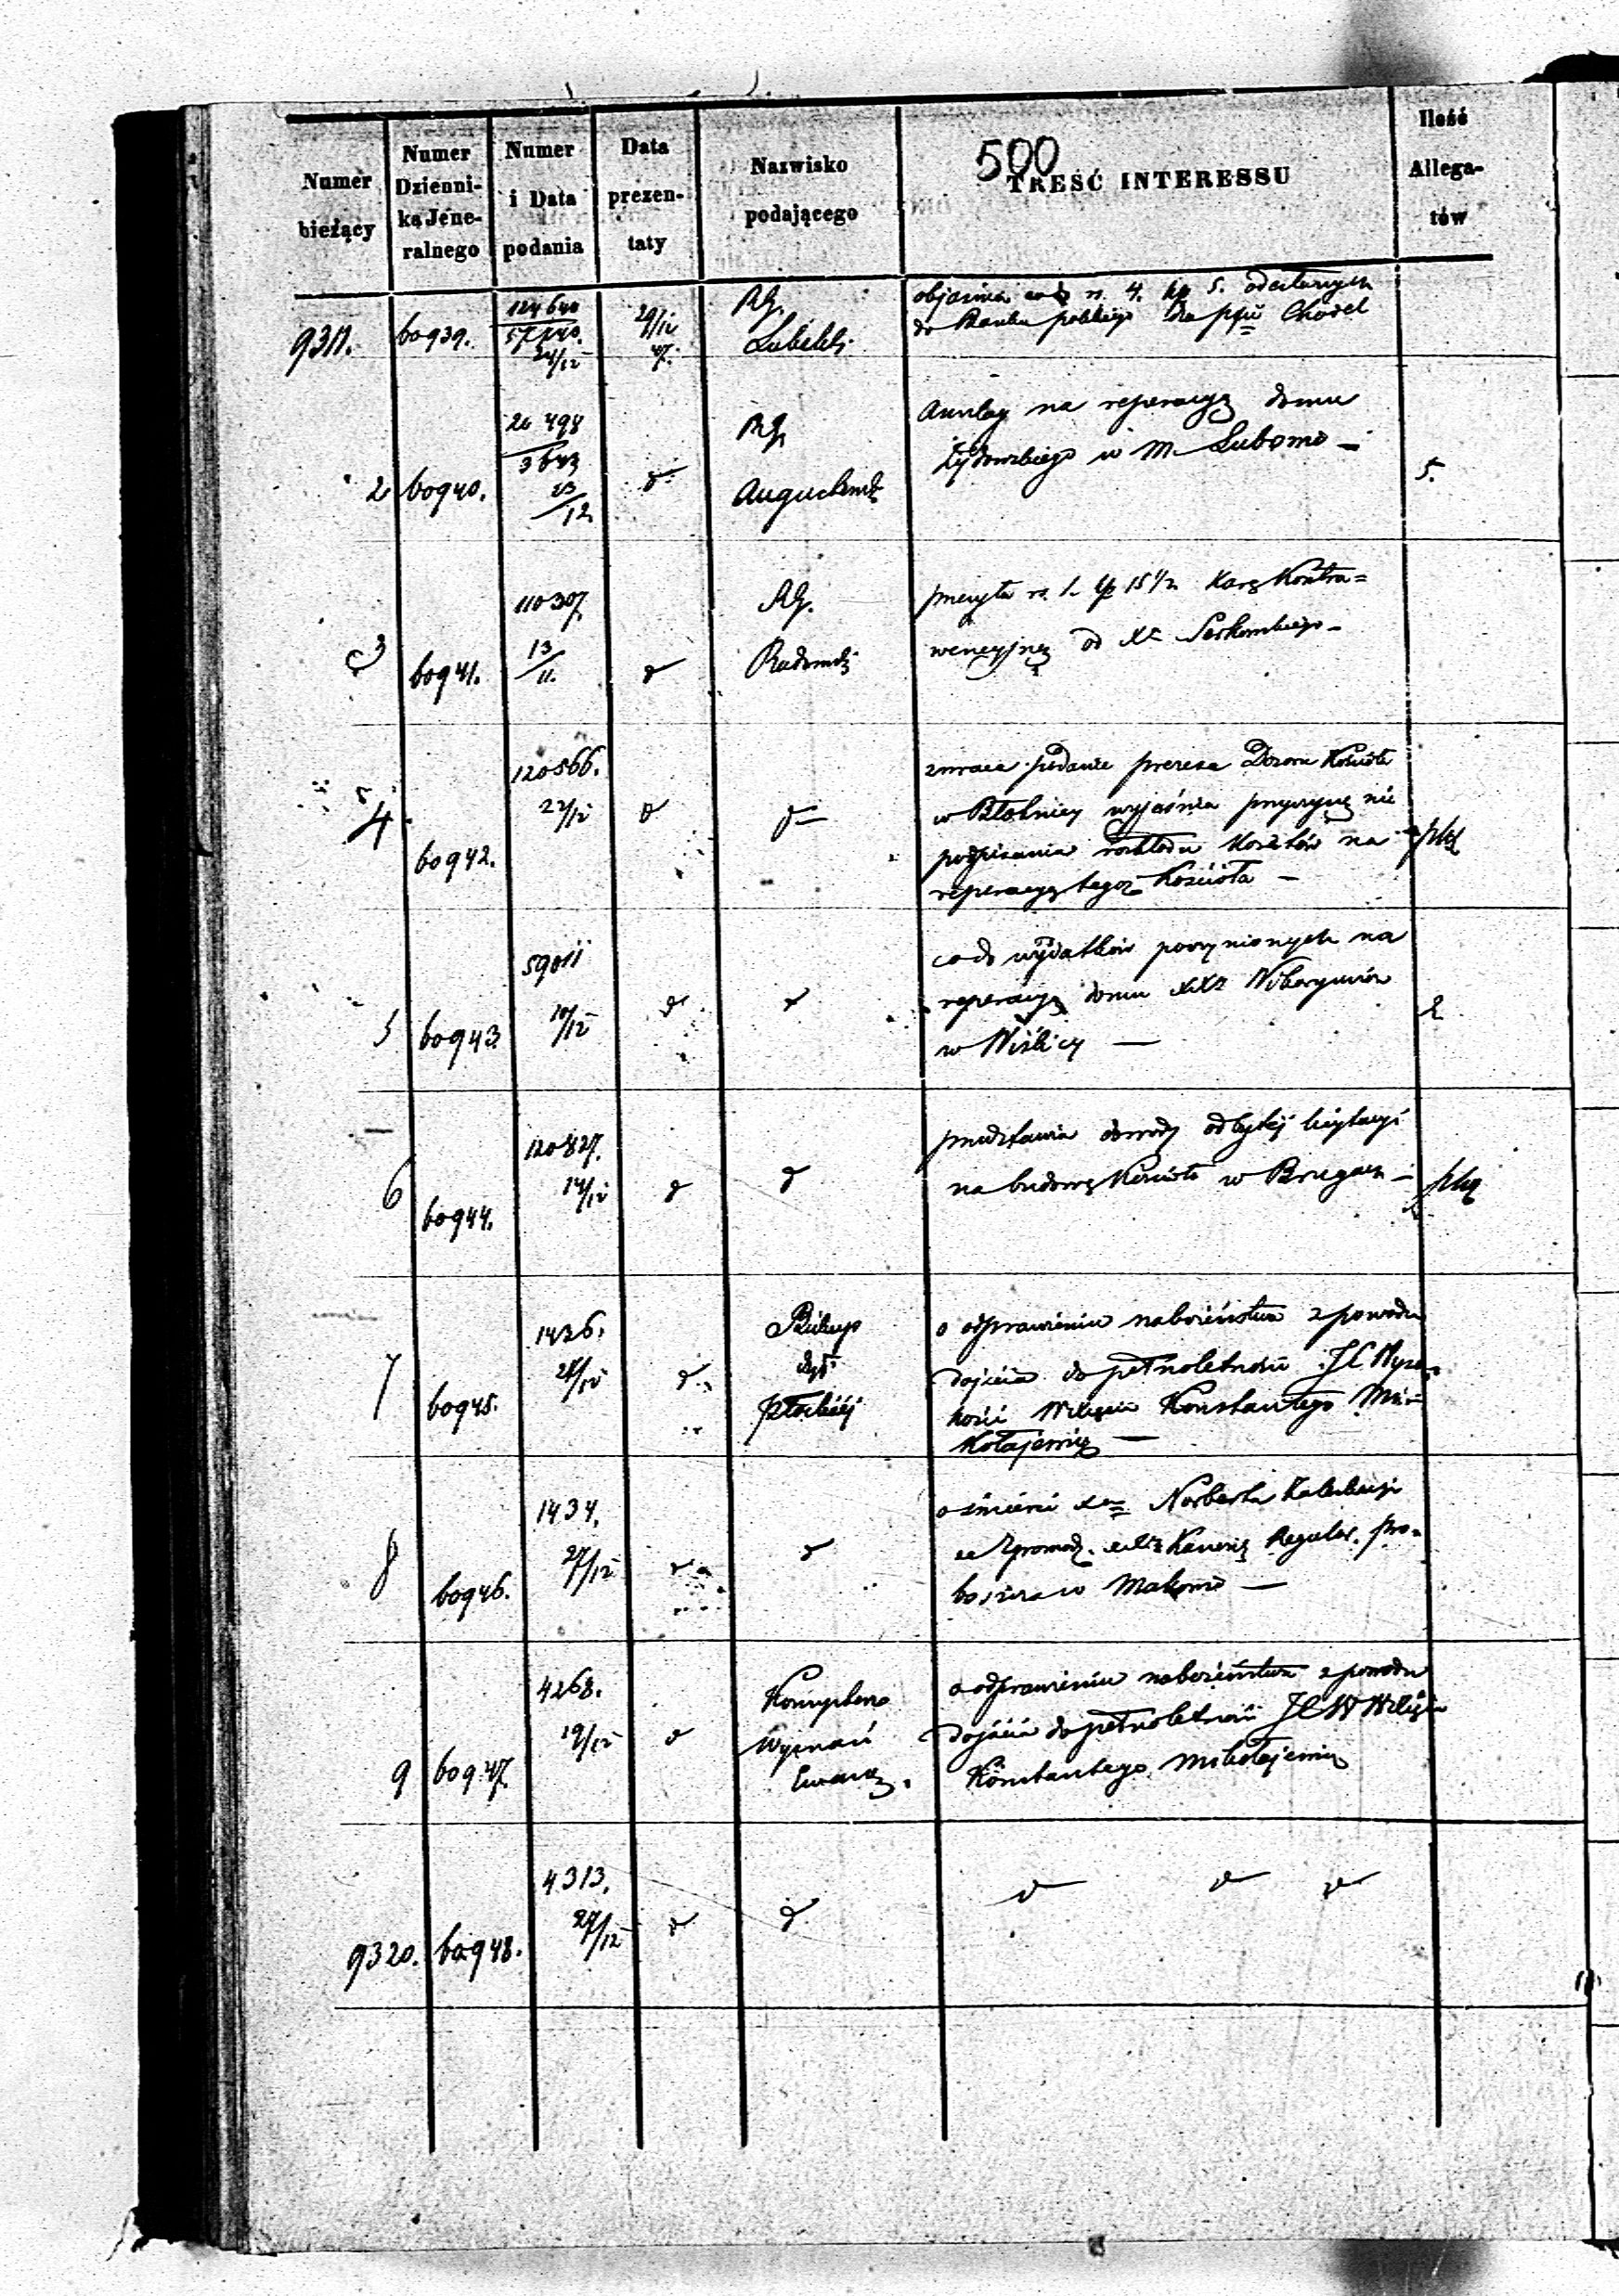 500
Numer bieżący
Numer Dzienni-ka Jene-ralnego
Numer i Data podania
Data prezen-taty
Nazwisko podającego
TREŚĆ INTERESSU
Ilość Allega-tów
9311. 60939. 124640 24/12 29/12 47. RG. Lubelski
objaśnia co do rs. 4. kp 5. odesłanych
do Banku polskiego dla Chodel
2 60940. 26498 23/12 RG. Augustowski
Anszlag na reperacyą domu
Żydowskiego w M. Lubomo — 5.
3 60941. 110307. 13/11. RG. Radomski
przesyła rs. 1. kp 15 1/2 karę kontra=
wencyjną od Xa
4 60942. 120566. 22/12
zwraca podanie prezesa Dozoru Kościoła
w Błotnicy wyjaśnia przyczynę nie
podpisania rozkładu kosztów na plik
reperacyą tegoż Kościoła —
5 60943 59011 10/12
co do wydatków poczynionych na
reperacyą domu XXz Wikaryuszów
w Wiślicy — 2
6 60944. 120827. 14/12
przedstawia dowody odbytéj licytacyi
na budowę Kościoła w Brzegach — plik
7 60945. 1436. 28/12 Biskup Dyi Płockiéj
o odprawieniu nabożeństwa z powodu
dojścia do pełnoletności JC Wyso=
kości W Xięcia Konstantego Mi=
kołajewicz —
8 60946. 1434. 27/12
o śmierci Xa Norberta
ze Zgromadz. XXz Kanonik Regular. pro=
boszcza w Makowie —
9 60947. 4268. 19/12 Konsystorz Wyznań Ewang.
o odprawieniu nabożeństwa z powodu
dojścia do pełnoletności JCW W Xięcia
Konstantego Mikołajewicz
9320. 60948. 4313. 27/12